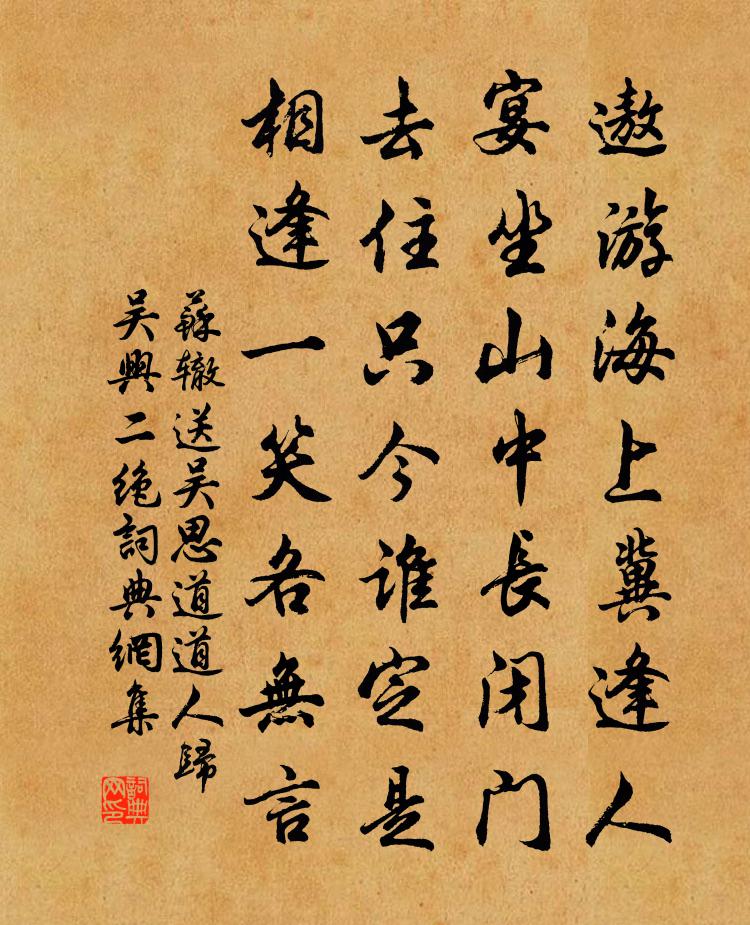 遨游海上冀逢人
宴坐山中長闭门
去住只今誰定是
相逢一笑各無言
蘇辙送吴思道道人歸
吴興二绝詞典網集
詞典网印